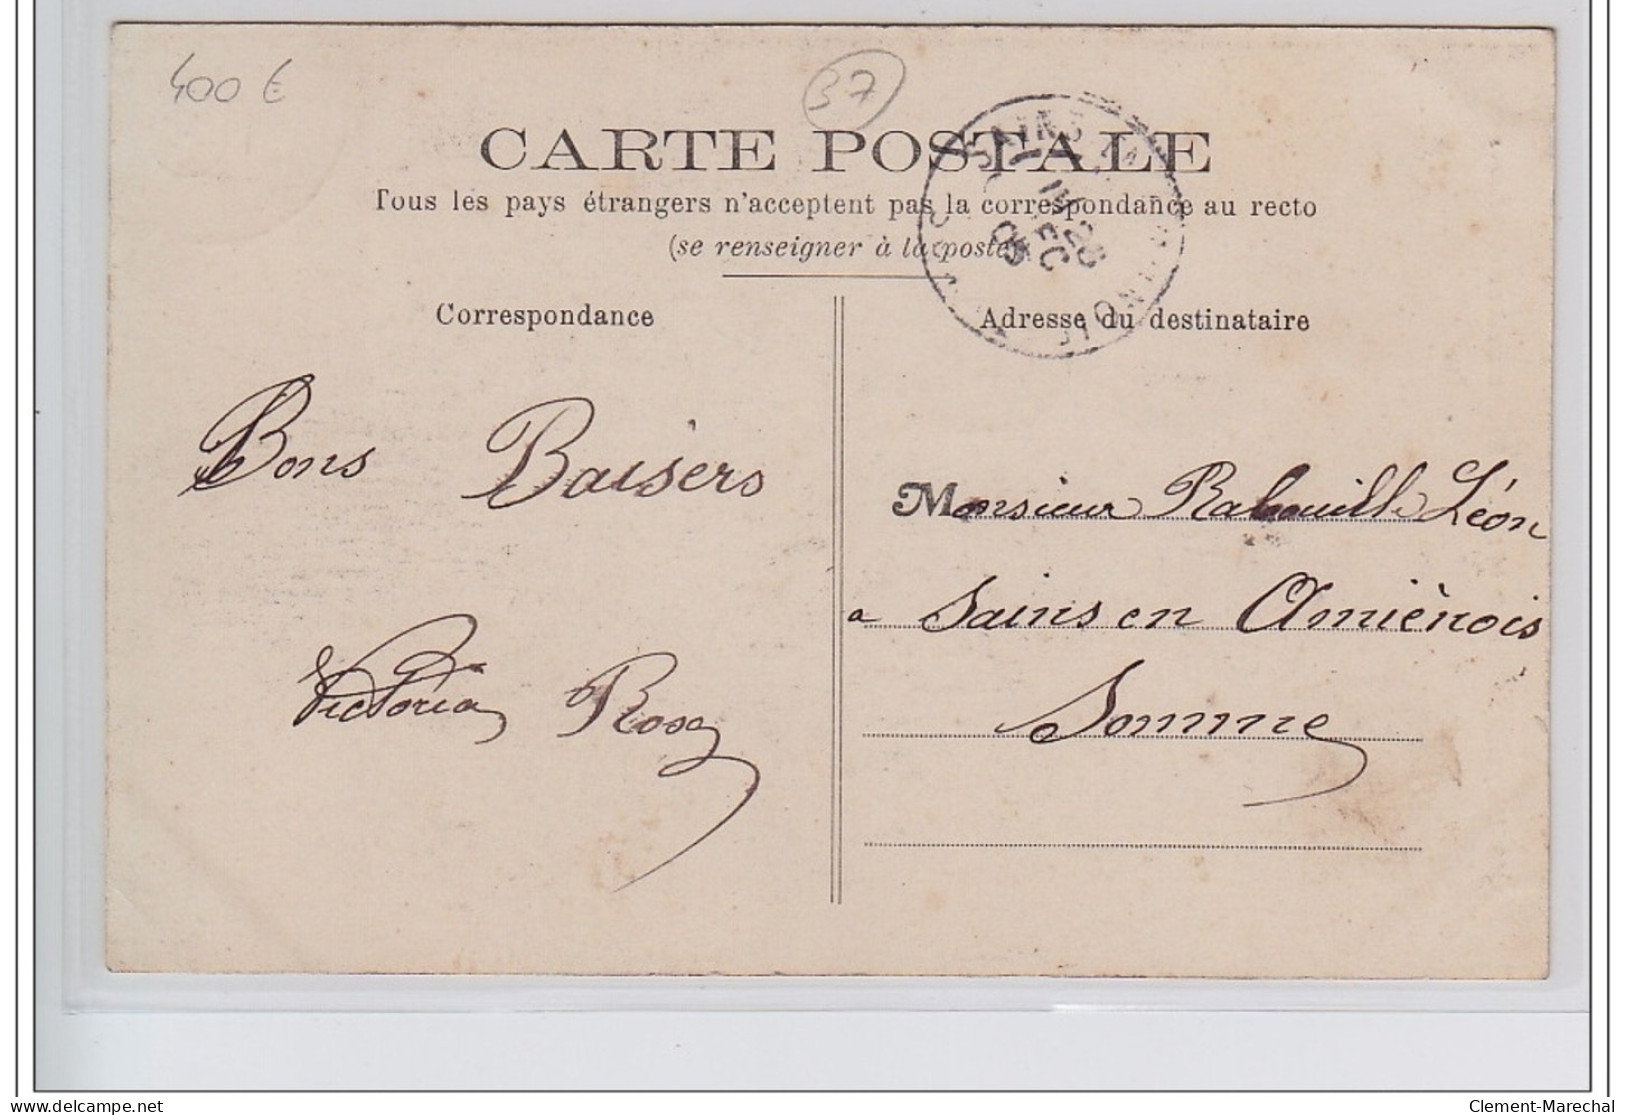 400 €
37
CARTE POSTALE
Tous les pays étrangers n'acceptent pas la correspondance au recto
(se renseigner à la poste)
Correspondance
Adresse du destinataire
Bons Baisers
Victoria Rose
Monsieur Rabouille Léon
a Sains en Amiènois
Somme
delcampe.net
Clement-Marechal